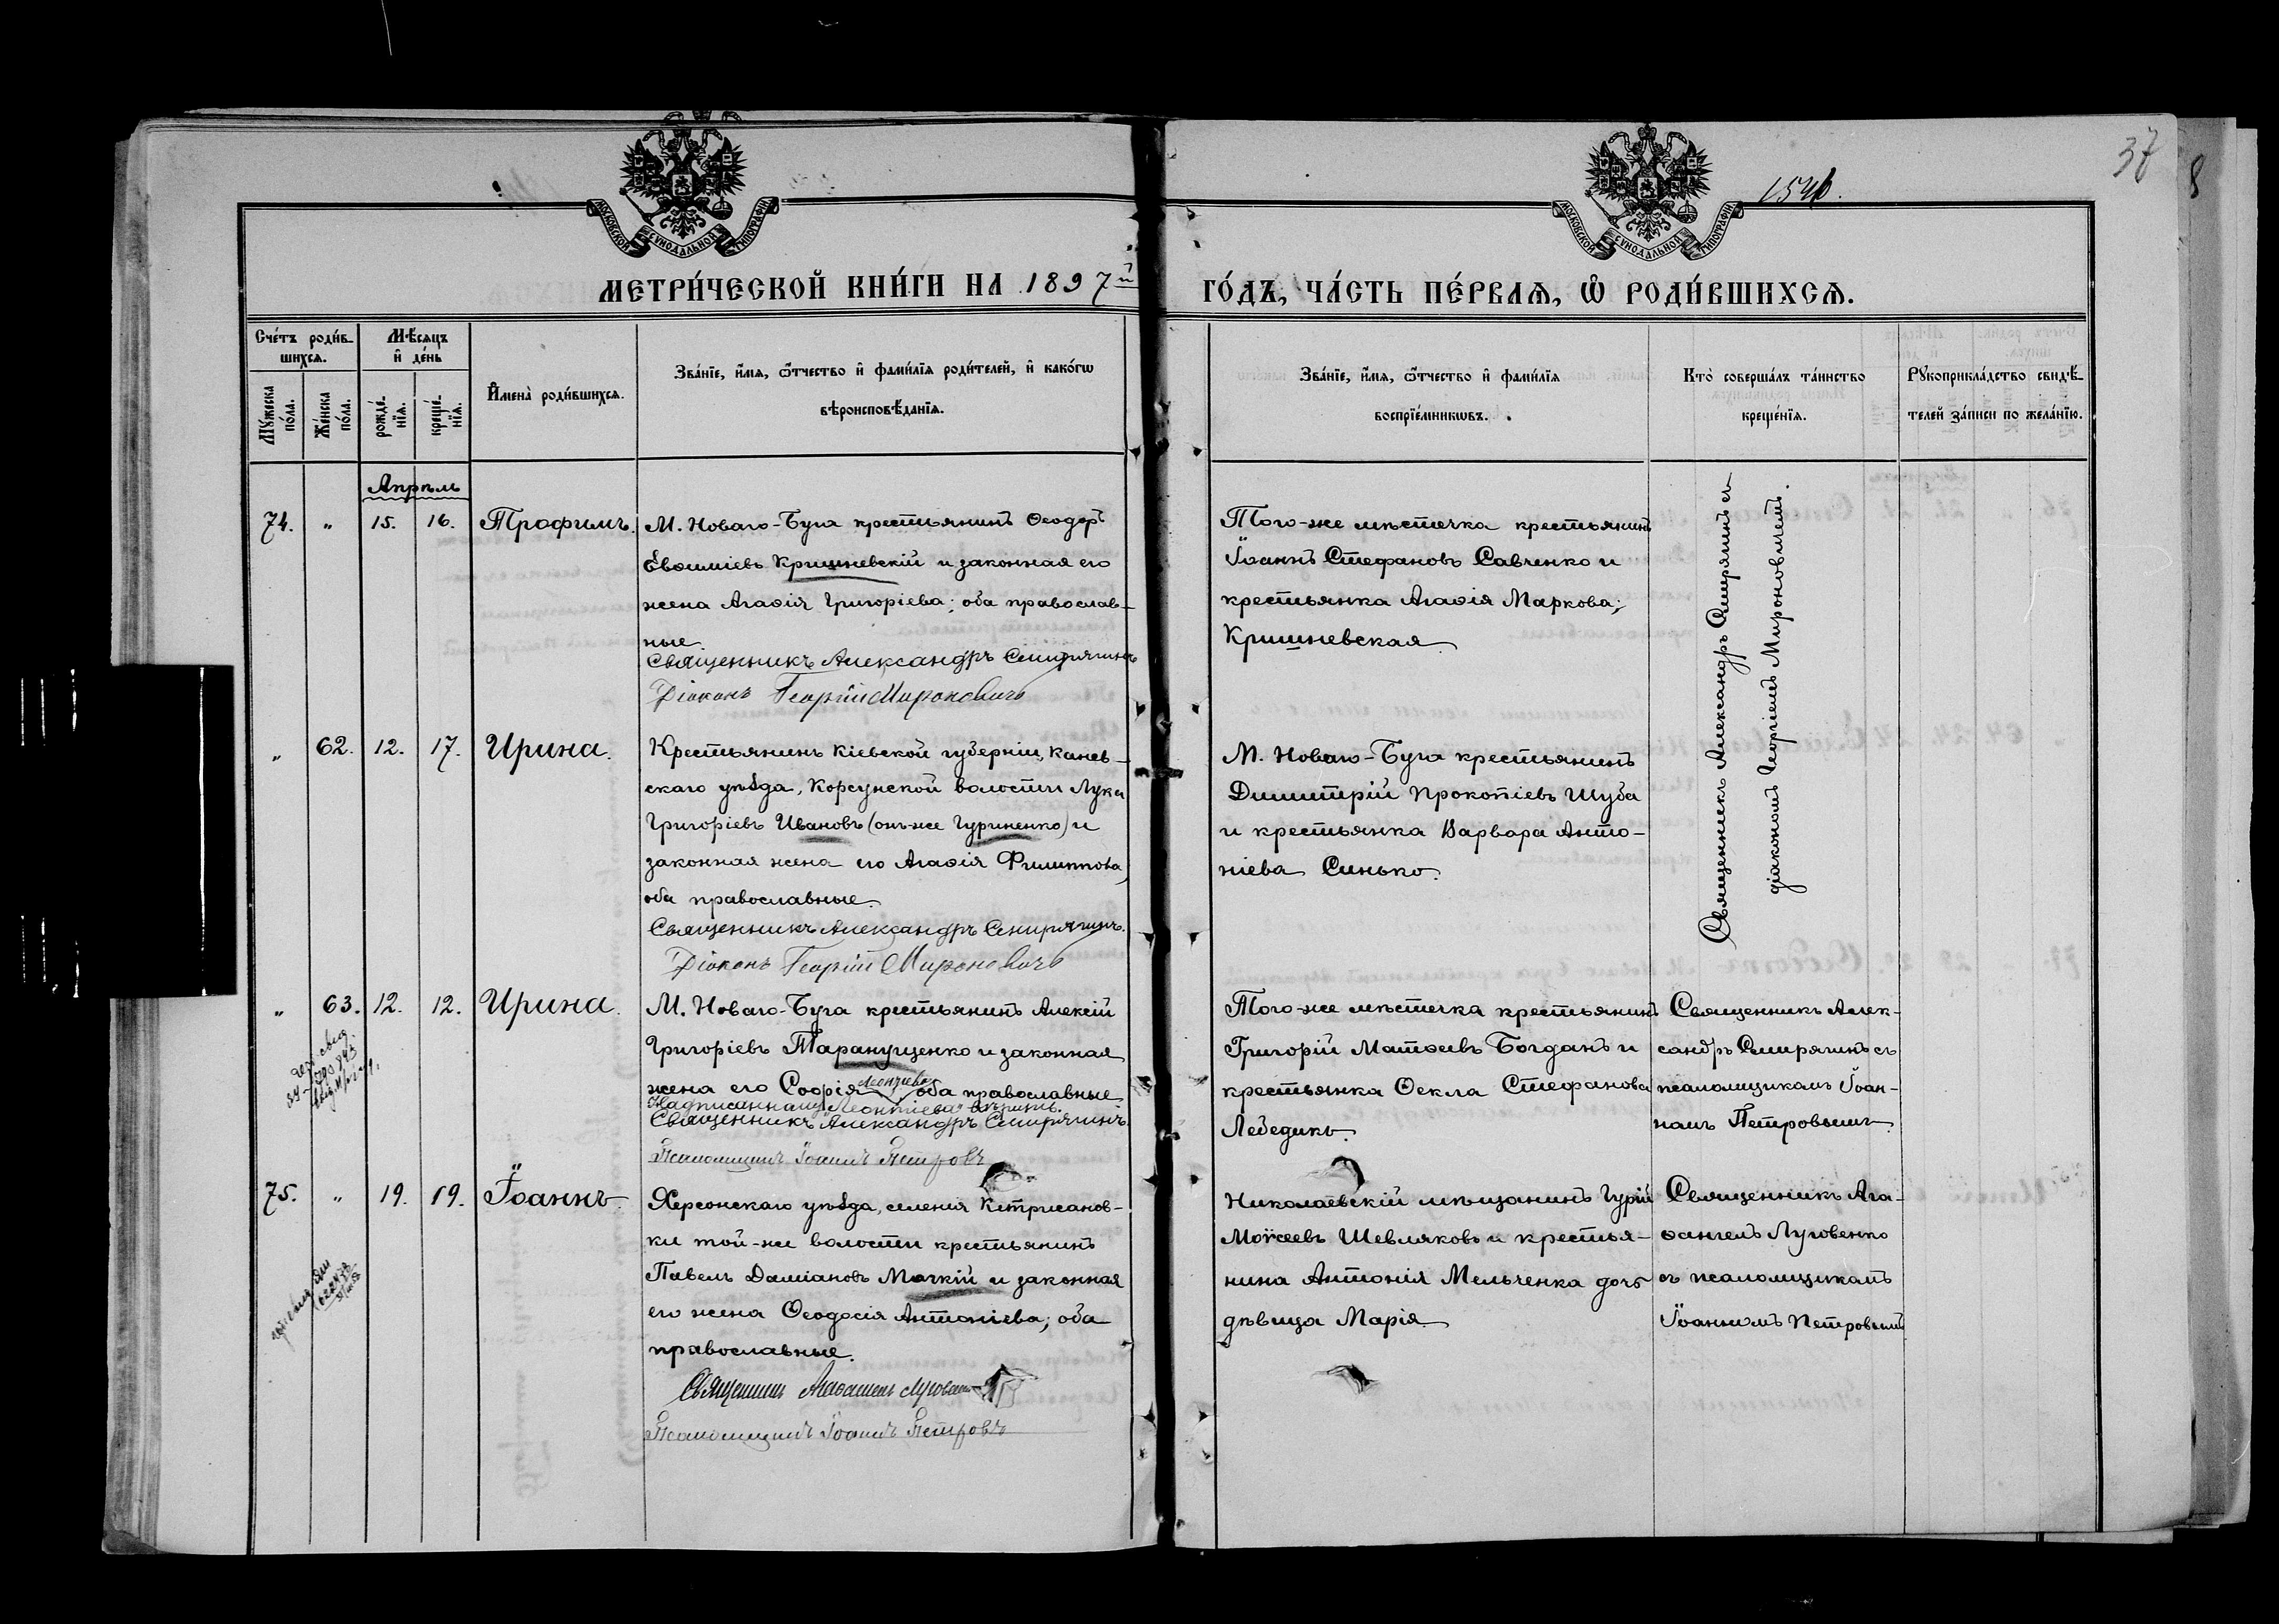 37
8
154
МОСКОВСКОЙ СѴНОДАЛЬНОЙ ТИПОГРАФІИ
МОСКОВСКОЙ СѴНОДАЛЬНОЙ ТИПОГРАФІИ
МЕТРИ́ЧЕСКОЙ КНИ́ГИ НА 1897й
ГО́ДЪ, ЧА́СТЬ ПЕ́РВАѦ, Ѡ҆ РОДИ́ВШИХСѦ.
Сче́тъ роди́в-
шихсѧ.
Мѣ́сѧцъ
и҆ де́нь
Мꙋ́жеска
по́ла.
Же́нска
по́ла.
рожде́-
нїѧ.
креще́-
нїѧ.
И҆мена̀ роди́вшихсѧ.
Зва́нїе, и҆́мѧ, ѻ҆́тчество и҆ фами́лїѧ роди́телей, и҆ како́гѡ
вѣроисповѣ́данїѧ.
Зва́нїе, и҆́мѧ, ѻ҆́тчество и҆ фами́лїѧ
воспрїе́мникѡвъ.
Кто̀ соверша́лъ та́инство
креще́нїѧ.
Рꙋкоприкла́дство свидѣ́-
телей за́писи по жела́нїю.
Апрѣль
74. " 15. 16. Трофимъ.
М. Новаго-Буга крестьянинъ Ѳеодоръ
Евѳиміевъ Кришневскій и законная его
жена Агаѳія Григоріева; оба православ-
ные
Священникъ Александръ Смирягинъ
Діаконъ Георгій Мироновичъ
Того-же мѣстечка крестьянинъ
Іоаннъ Стефановъ Савченко и
крестьянка Агаѳія Маркова;
Кришневская
Священникъ Александръ Смирягинъ съ
діакономъ Георгіемъ Мироновичемъ.
" 62. 12. 17. Ирина.
Крестьянинъ Кіевской губерніи, Канев-
скаго уѣзда, Корсунской волости Лука
Григоріевъ Ивановъ (онъ-же Гуриненко) и
законная жена его Агаѳія Филиппова,
оба православные.
Священникъ Александръ Смирягинъ.
Діаконъ Георгій Мироновичъ
М. Новаго-Буга крестьянинъ
Димитрій Прокопіевъ Шуба
и крестьянка Варвара Анто-
ніева Синько.
" 63. 12. 12. Ирина.
М. Новаго-Буга крестьянинъ Алексій
Григоріевъ Таранущенко и законная
жена его Софія Леонтіева оба православные
Надписанному "Леонтіева" вѣрить.
Священникъ Александръ Смирягинъ.
Псаломщикъ Іоаннъ Петровъ
Того-же мѣстечка крестьянинъ
Григорій Матѳеевъ Богданъ и
крестьянка Ѳекла Стефанова
Лебедикъ.
Священникъ Алек-
сандръ Смирягинъ съ
псаломщикомъ Іоан-
номъ Петровымъ
75. " 19. 19. Іоаннъ.
Херсонскаго уѣзда, селенія Кетрисанов-
ки той-же волости крестьянинъ
Павелъ Даміановъ Мачкій и законная
его жена Ѳеодосія Антоніева; оба
православные.
Священникъ Агаѳангелъ Луговенко
Псаломщикъ Іоаннъ Петровъ
Николаевскій мѣщанинъ Гурій
Моѵсеевъ Шевляковъ и крестья-
нина Антонія Мельченка дочь
дѣвица Марія.
Священникъ Ага-
ѳангелъ Луговенко
съ псаломщикомъ
Іоанномъ Петровымъ